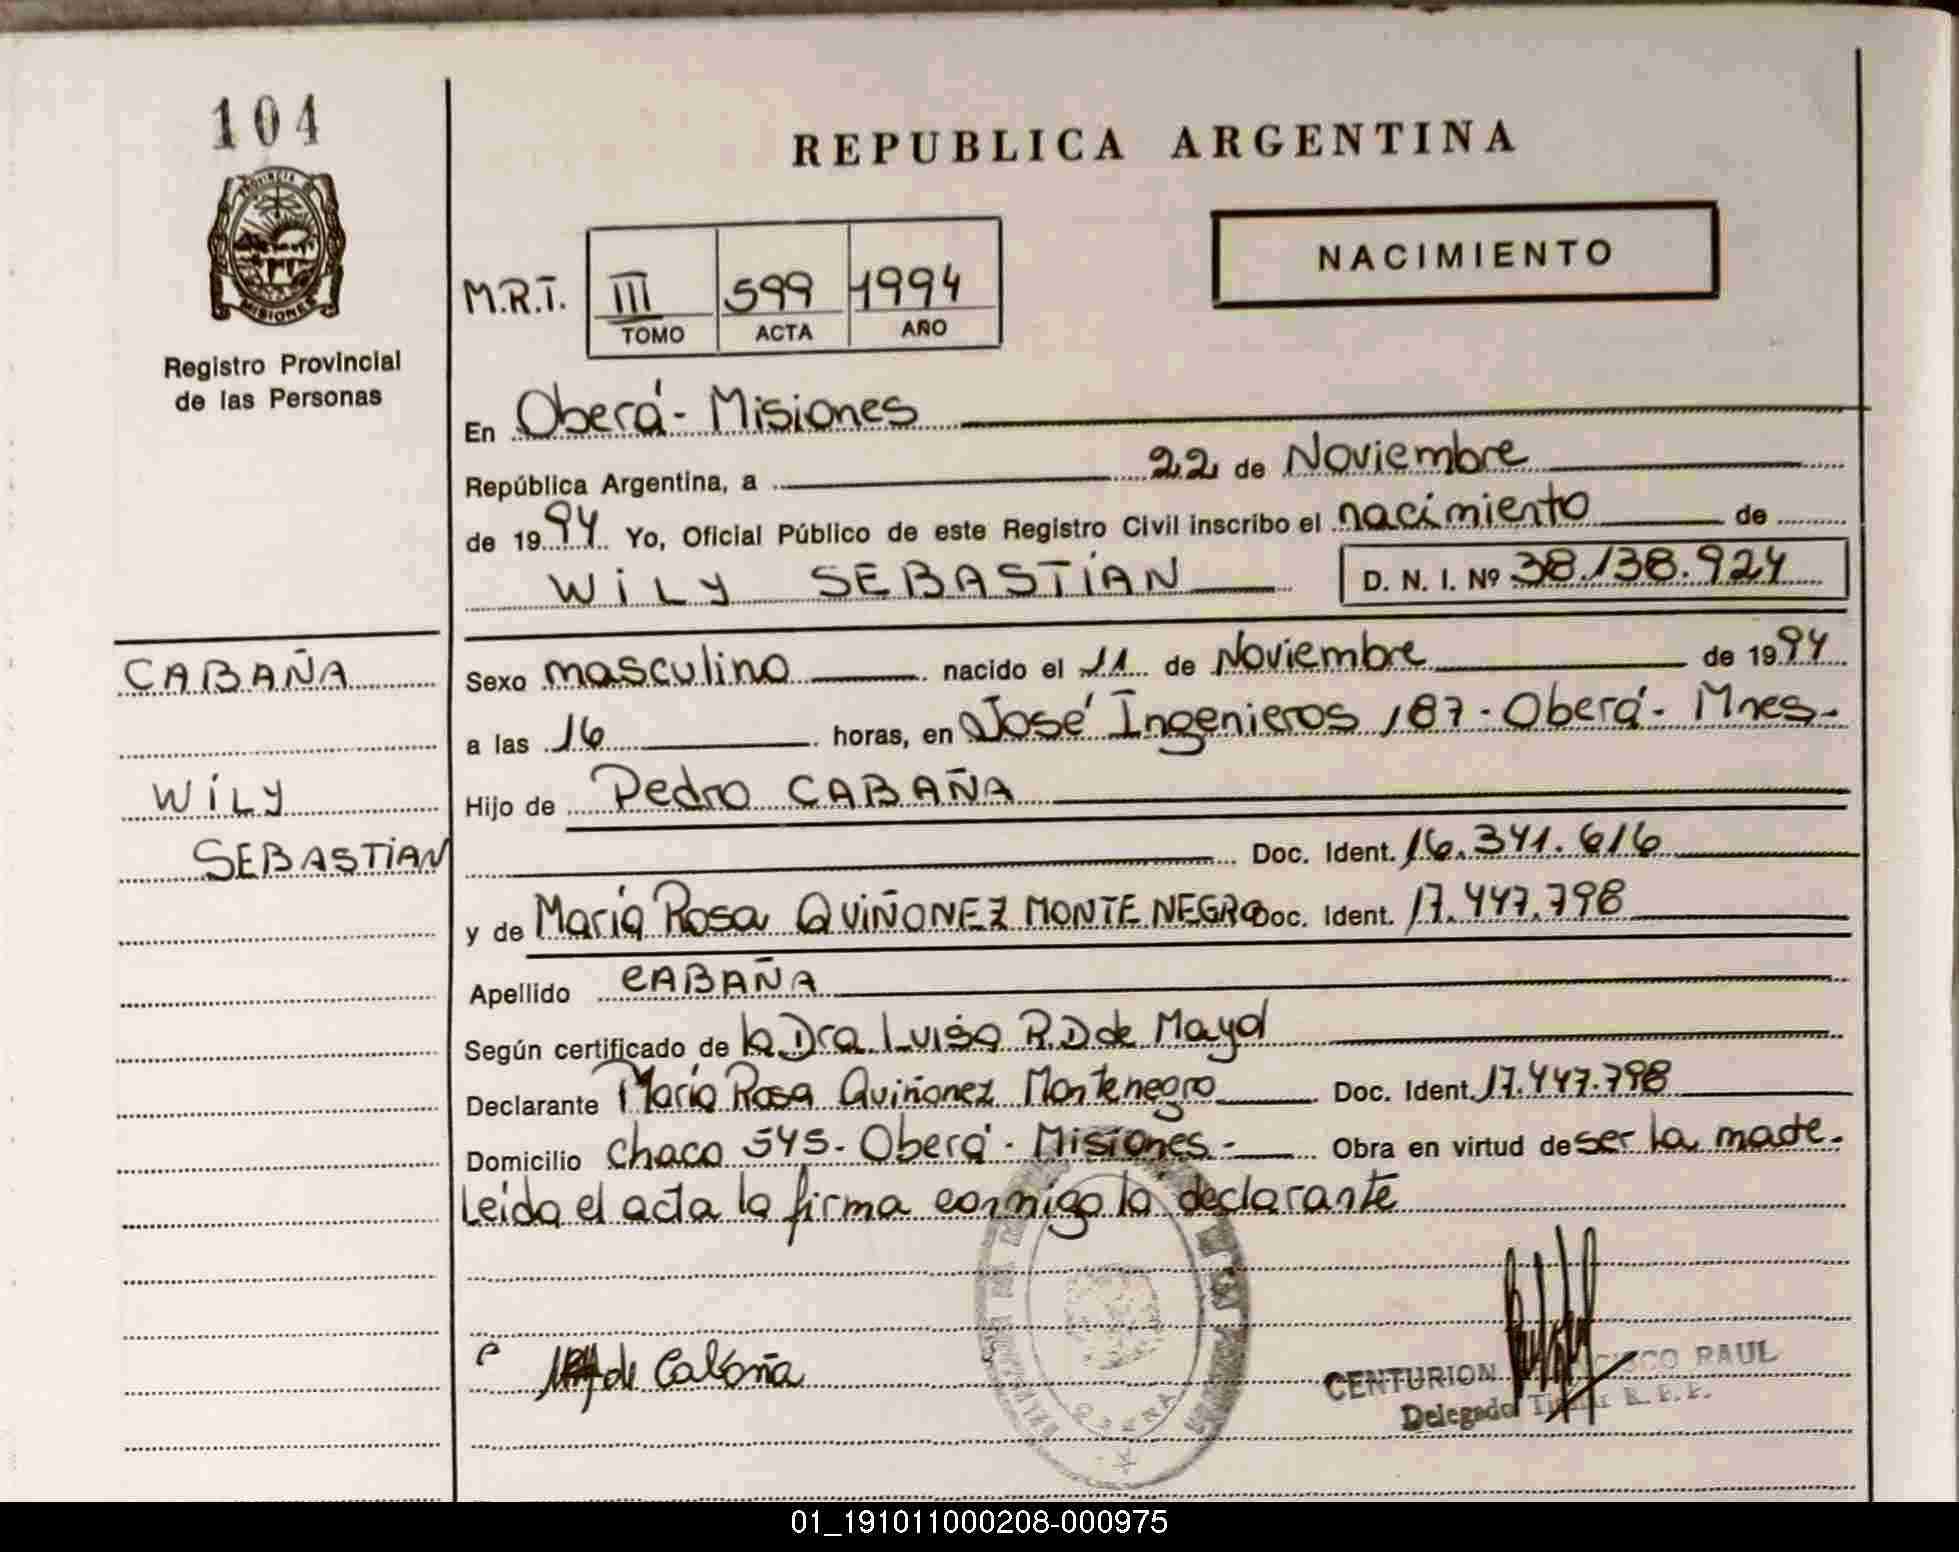 104
PROVINCIA DE
MISIONES
Registro Provincial
de las Personas
REPUBLICA ARGENTINA
NACIMIENTO
M.R.T. III 599 1994
TOMO ACTA AÑO
En Oberá - Misiones
República Argentina, a 22 de Noviembre
de 1994 Yo, Oficial Público de este Registro Civil inscribo el nacimiento de
WILY SEBASTIAN D. N. I. Nº 38.138.924
CABAÑA
WILY
SEBASTIAN
Sexo masculino nacido el 11 de Noviembre de 1994
a las 16 horas, en José Ingenieros 187 - Oberá - Mnes -
Hijo de Pedro CABAÑA
Doc. Ident. 16.341.616
y de María Rosa QUIÑONEZ MONTENEGRO Doc. Ident. 17.447.798
Apellido CABAÑA
Según certificado de la Dra Luisa R.D de Mayol
Declarante María Rosa Quiñonez Montenegro Doc. Ident. 17.447.798
Domicilio Chaco 545 - Oberá - Misiones - Obra en virtud de ser la madre.
Leída el acta la firma conmigo la declarante
de Cabaña
OBERA
CENTURION RAUL
Delegado Titular R. P. P.
01_191011000208-000975